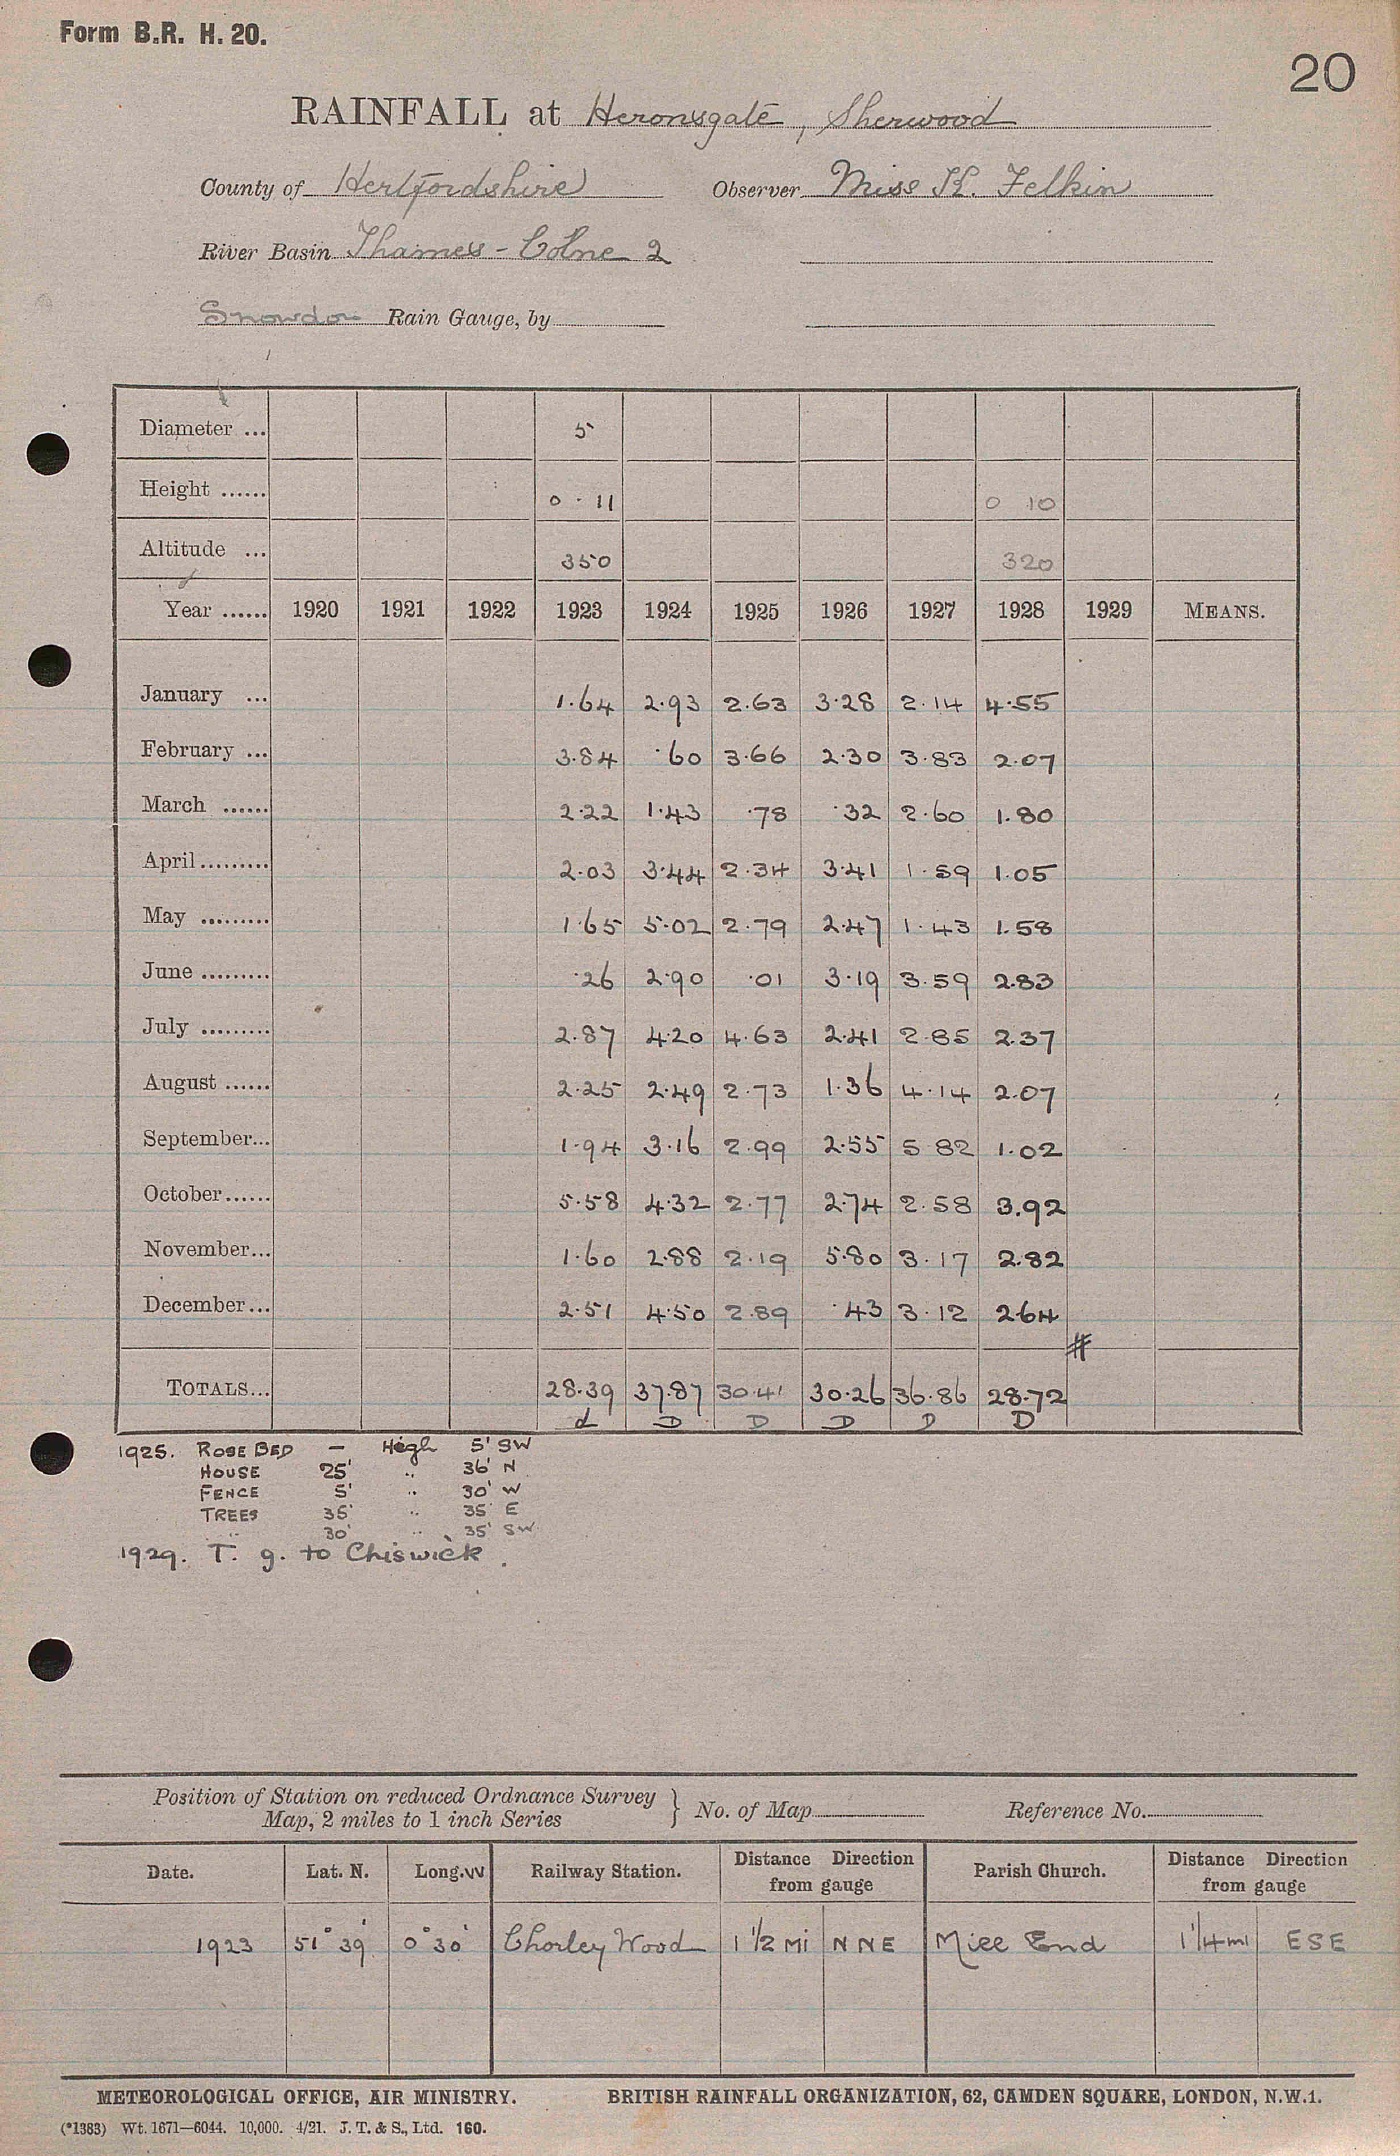 Form B.R. H. 20.
20
RAINFALL at Heronsgate, Sherwood
County of Hertfordshire Observer Miss K. Felkin
River Basin Thames - Colne 2
Snowdon Rain Gauge, by
Diameter ... 5
Height ...... 0 - 11 0 10
Altitude ... 350 320
Year ...... 1920 1921 1922 1923 1924 1925 1926 1927 1928 1929 MEANS.
January ... 1.64 2.93 2.63 3.28 2.14 4.55
February ... 3.84 .60 3.66 2.30 3.83 2.07
March ...... 2.22 1.43 .78 .32 2.60 1.80
April ......... 2.03 3.44 2.34 3.41 1.59 1.05
May ......... 1.65 5.02 2.79 2.47 1.43 1.58
June ......... .26 2.90 .01 3.19 3.59 2.83
July ......... 2.87 4.20 4.63 2.41 2.85 2.37
August ...... 2.25 2.49 2.73 1.36 4.14 2.07
September... 1.94 3.16 2.99 2.55 5 82 1.02
October...... 5.58 4.32 2.77 2.74 2.58 3.92
November... 1.60 2.88 2.19 5.80 3.17 2.82
December... 2.51 4.50 2.89 .43 3.12 264
#
TOTALS... 28.39 37.87 30.41 30.26 36.86 28.72
d D D D D D
1925. ROSE BED — High 5' SW
HOUSE 25' " 36' N
FENCE 5' " 30' W
TREES 35' " 35' E
" 30' " 35' SW
1929. T. g. to Chiswick.
Position of Station on reduced Ordnance Survey
Map, 2 miles to 1 inch Series } No. of Map Reference No.
Date. Lat. N. Long. W Railway Station. Distance Direction from gauge Parish Church. Distance Direction from gauge
1923 51° 39' 0° 30' Chorley Wood 1 1/2 Mi N N E Mill End 1 1/4 mi E S E
METEOROLOGICAL OFFICE, AIR MINISTRY. BRITISH RAINFALL ORGANIZATION, 62, CAMDEN SQUARE, LONDON, N.W.1.
(*1383) Wt. 1671—6044. 10,000. 4/21. J. T. & S., Ltd. 160.